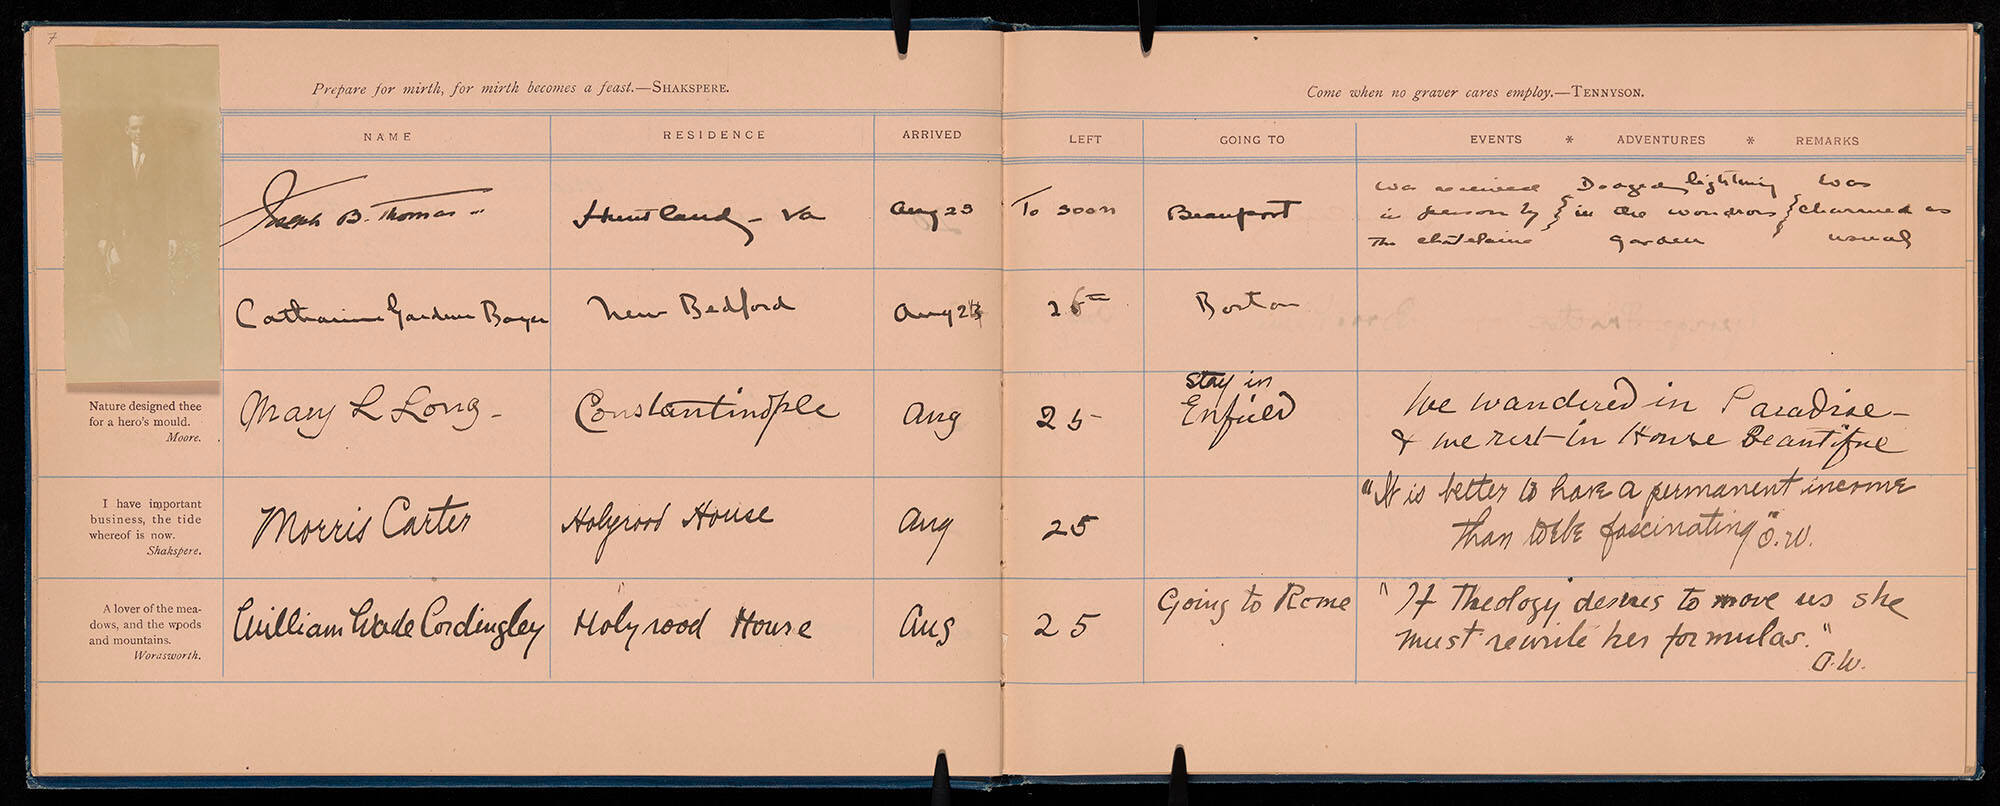 7
Prepare for mirth, for mirth becomes a feast.—SHAKSPERE.
Come when no graver cares employ.—TENNYSON.
NAME RESIDENCE ARRIVED LEFT GOING TO EVENTS * ADVENTURES * REMARKS
Joseph B. Thomas Huntland - Va Aug 23 To soon Beauport
was received Dodged lightning was
in person by in the wondros charmed as
The chatelaine garden usual
Catharine Gardner Bayer New Bedford Aug 26th Boston
Nature designed thee
for a hero's mould.
Moore.
Mary L Long - Constantinople Aug 25
stay in
Enfield
We wandered in Paradise -
& we rest in House Beautiful
I have important
business, the tide
whereof is now.
Shakspere.
Morris Carter Holyrood House Aug 25
"It is better to have a permanent income
than to be fascinating" O.W.
A lover of the mea-
dows, and the woods
and mountains.
Worasworth.
William Wade Cordingley Holyrood House Aug 25 Going to Rome
"If Theology desires to move us she
must rewrite her formulas."
O.W.